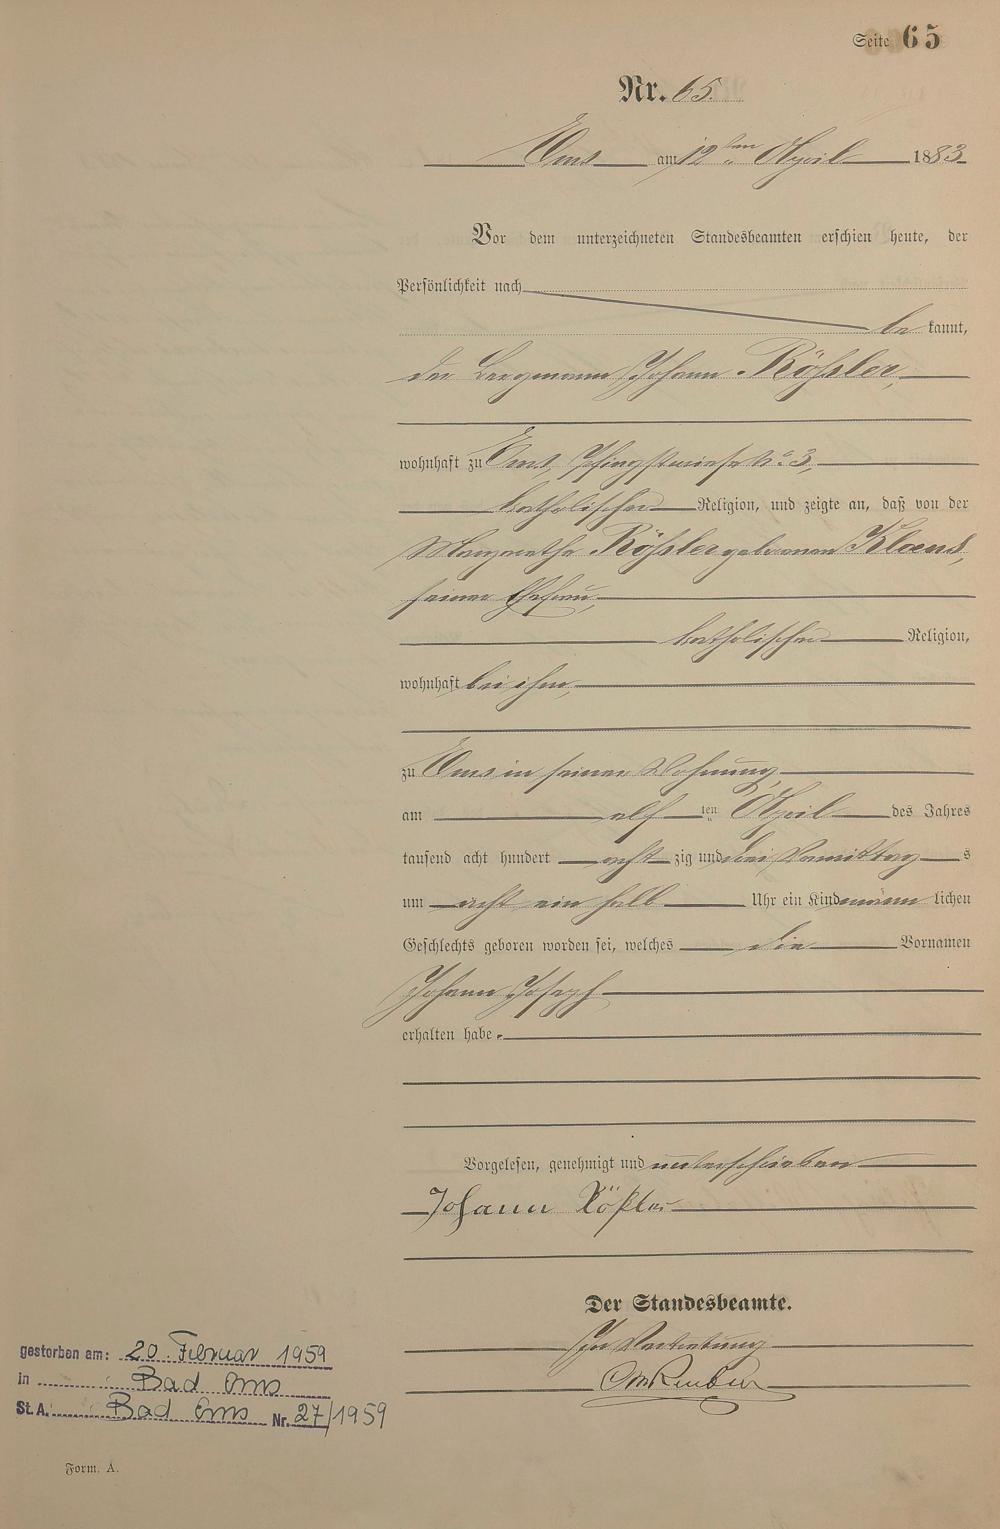 Seite 65
Nr. 65.
Ems am 12ten April 1883
Vor dem unterzeichneten Standesbeamten erschien heute, der
Persönlichkeit nach
be kannt,
der Bergmann Johann Rößler,
wohnhaft zu Ems, Pfingstwiese No 3,
katholischer Religion, und zeigte an, daß von der
Margarethe Rößler geborenen Klaus,
seiner Ehefrau,
katholischer Religion,
wohnhaft bei ihm,
zu Ems in seiner Wohnung,
am elf ten April des Jahres
tausend acht hundert acht zig und drei Vormittag s
um acht ein halb Uhr ein Kind männ lichen
Geschlechts geboren worden sei, welches die Vornamen
Johann Joseph
erhalten habe.
Vorgelesen, genehmigt und unterschrieben
Johann Rößler
Der Standesbeamte.
In Vertretung
gestorben am: 20. Februar 1959
in Bad Ems
St. A. Bad Ems Nr. 27/1959
Form. A.